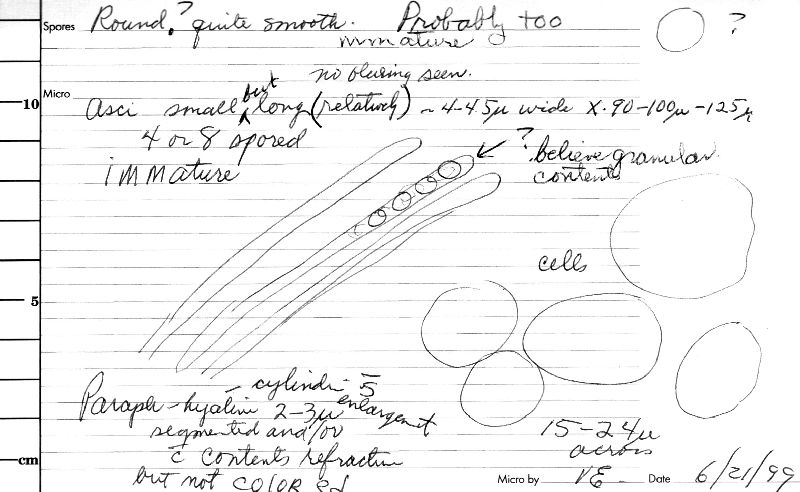 Spores Round,? quite smooth. Probably too
immature ?
no bluing seen.
10 Micro Asci small but long (relatively) ~ 4-4.5µ wide X 90-100µ-125µ
4 or 8 spored
immature
? believe granular
contents
cells
5
Paraph - hyalin - cylindri s̄
2-3µ enlargem't
segmented and/or
c̄ contents refractive
but not colored
15-24µ
across
cm Micro by VE Date 6/21/99